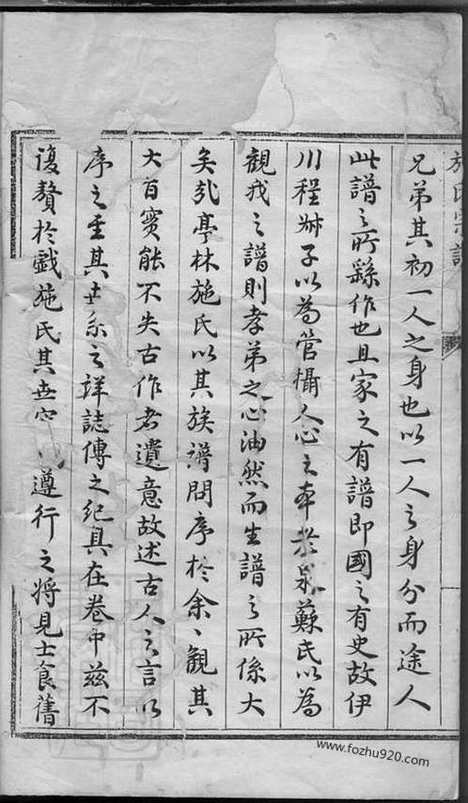 施氏宗譜
兄弟其初一人之身也以一人之身分而途人
此譜之所繇作也且家之有譜即國之有史故伊
川程叔子以為管攝人心之本於是蘇氏以為
觀我之譜則孝弟之心油然而生譜之所係大
矣哉亭林施氏以其族譜問序於余、觀其
大旨實能不失古作者遺意故述古人之言以
序之至其世系之詳誌傳之紀具在卷中茲不
復贅於戲施氏其世守遵行之將見士食舊
www.fozhu920.com